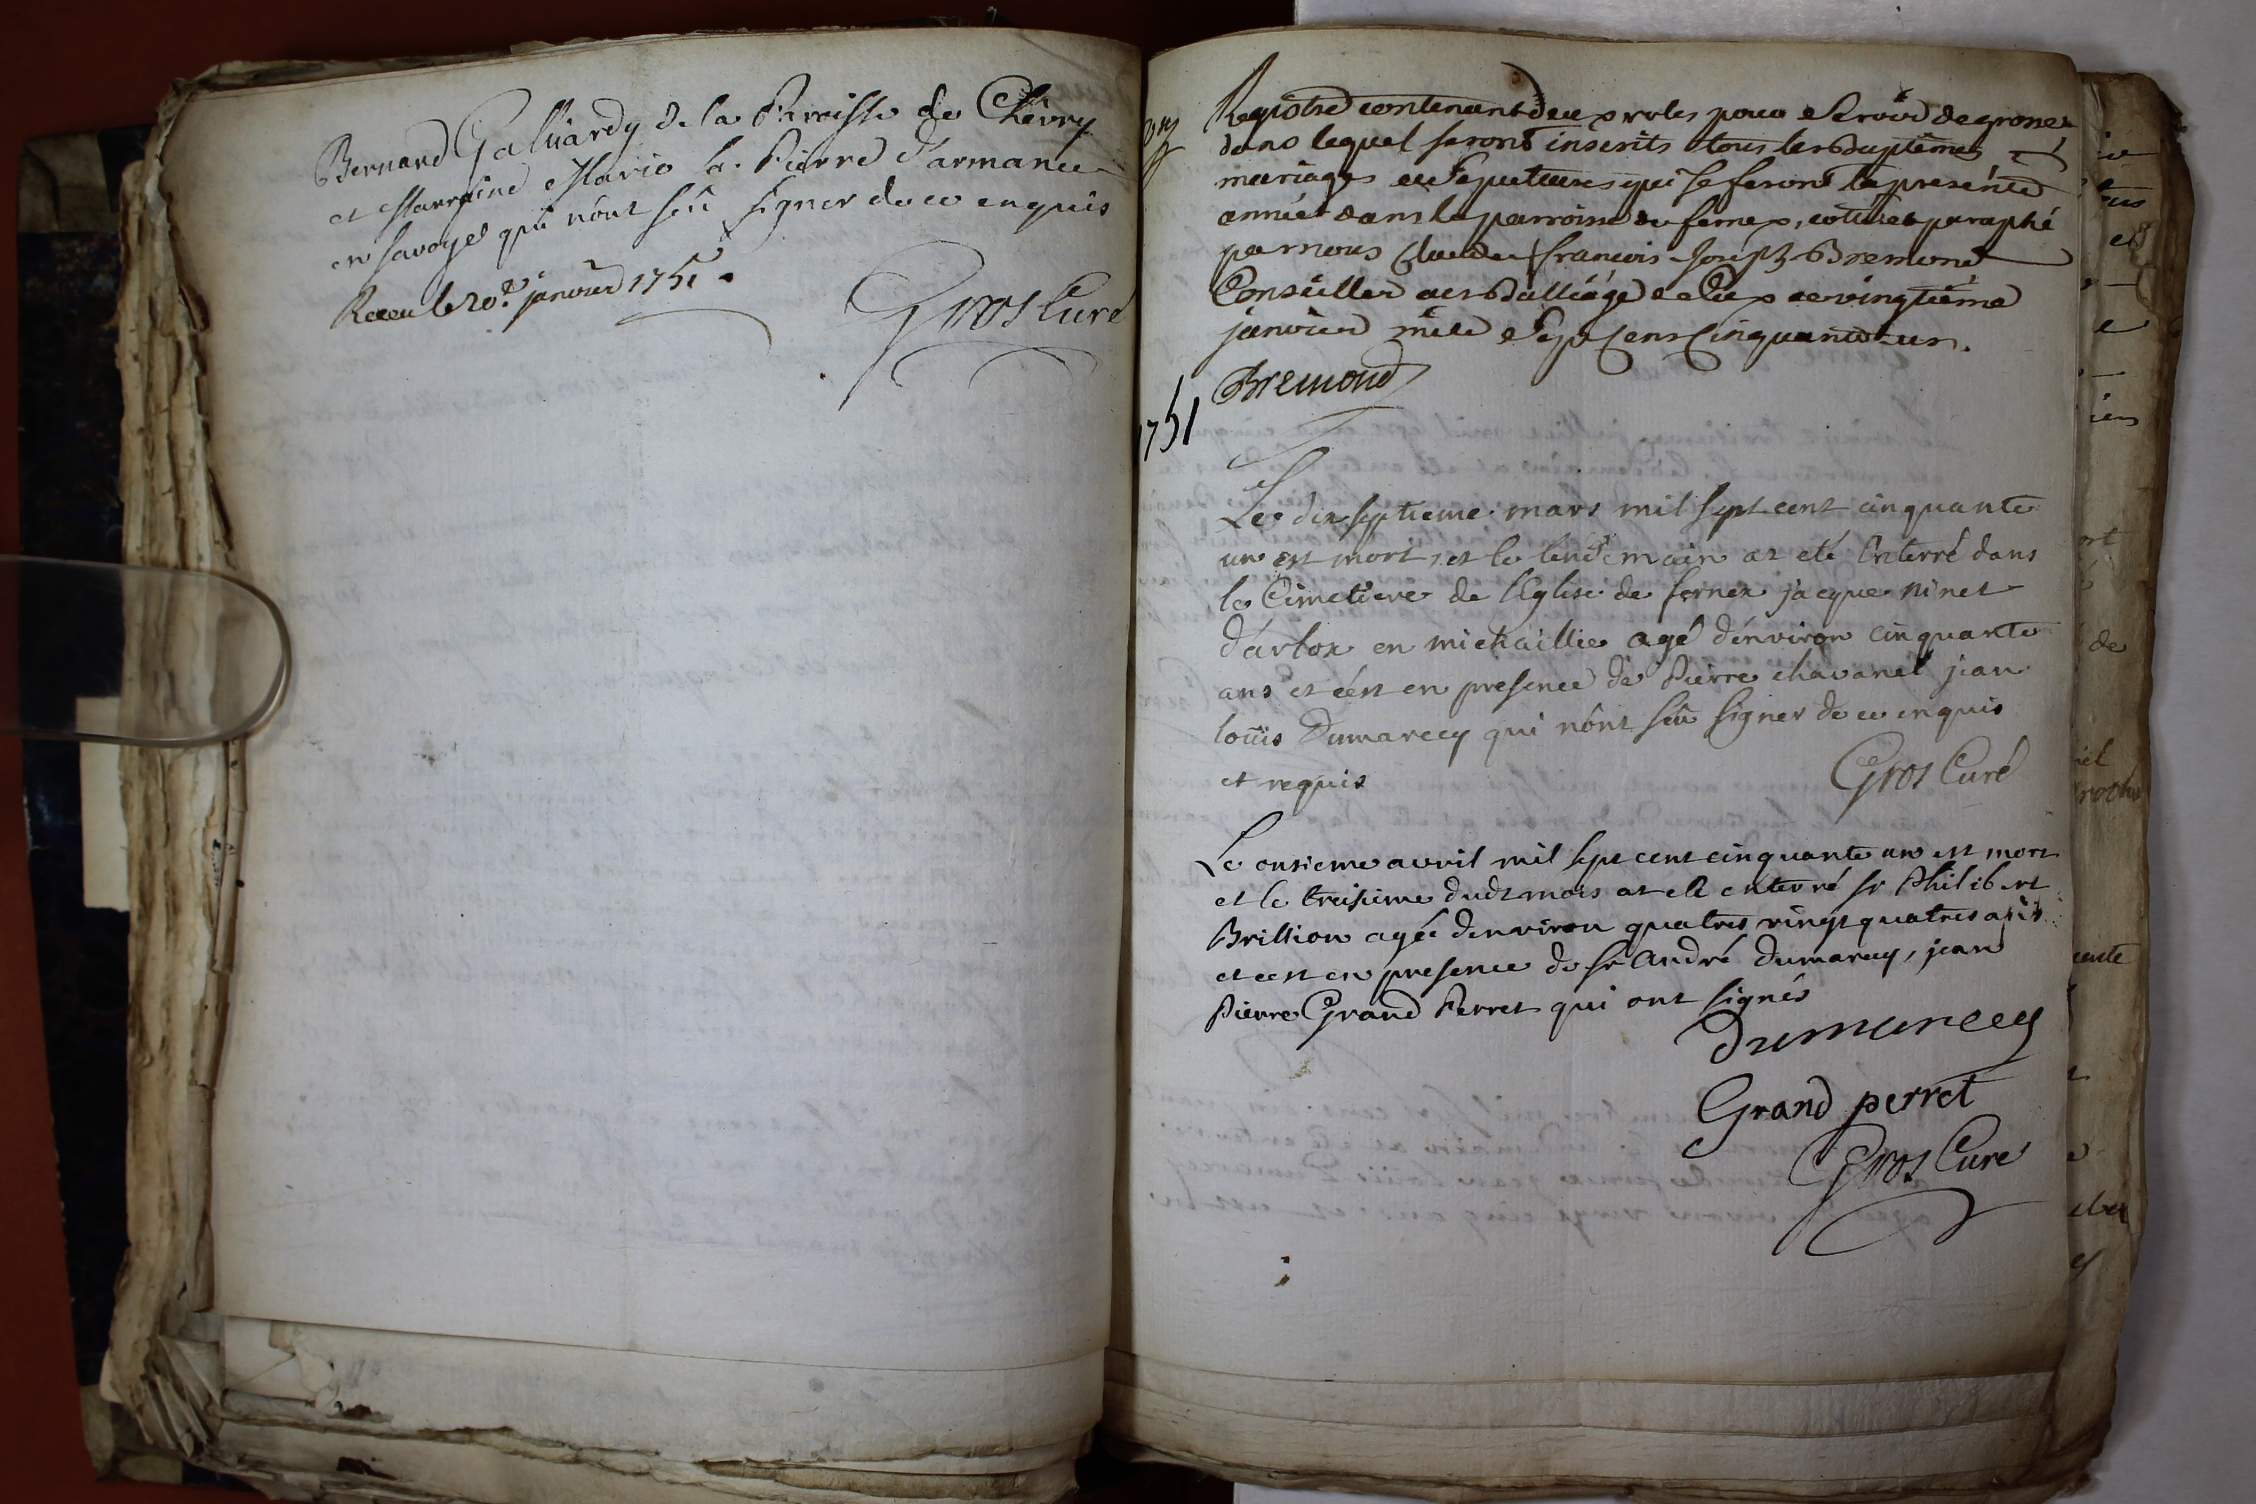 Bernard Galliardy de la Paroisse de Chevry
et Marraine Marie la Pierre d'armance
en savoyes qui nônt seû signer de ce enquis
Receu le 20.e janvier 1751.
Gros Curé
Registre contenant deux roles pour servir de grosse
dans lequel seront inserits tous les Baptêmes
mariages et Sepultures qui se feront la presente
année dans la parroisse de fernex, cottés et paraphé
par nous Claude francois Joseph Bremond
Conseiller au Balliage de Gex ce vingtiéme
janvier mile Sept Cens Cinquante un.
Bremond
1751
Le dix septieme mars mil sept cent cinquante
un est mort, et le lendemain at eté Enterré dans
le Cimetiere de l'Eglise de fernex jacque ninet
d'arlox en michaillie agé d'énviron cinquante
ans et cést en presence de Pierre chavanel jean
loüis Dumarecy qui nônt seû signer de ce enquis
et requis
Gros Curé
Le onsieme avril mil sept cent cinquante un est mort
et le treisieme dudt mois at eté enterré sr Philibert
Brillion agée denviron quatres vingt quatres ans
et cest en presence de sr André Dumarecy, jean
Pierre Grand Perret qui ont signés
Dumarecy
Grand perret
Gros Curé